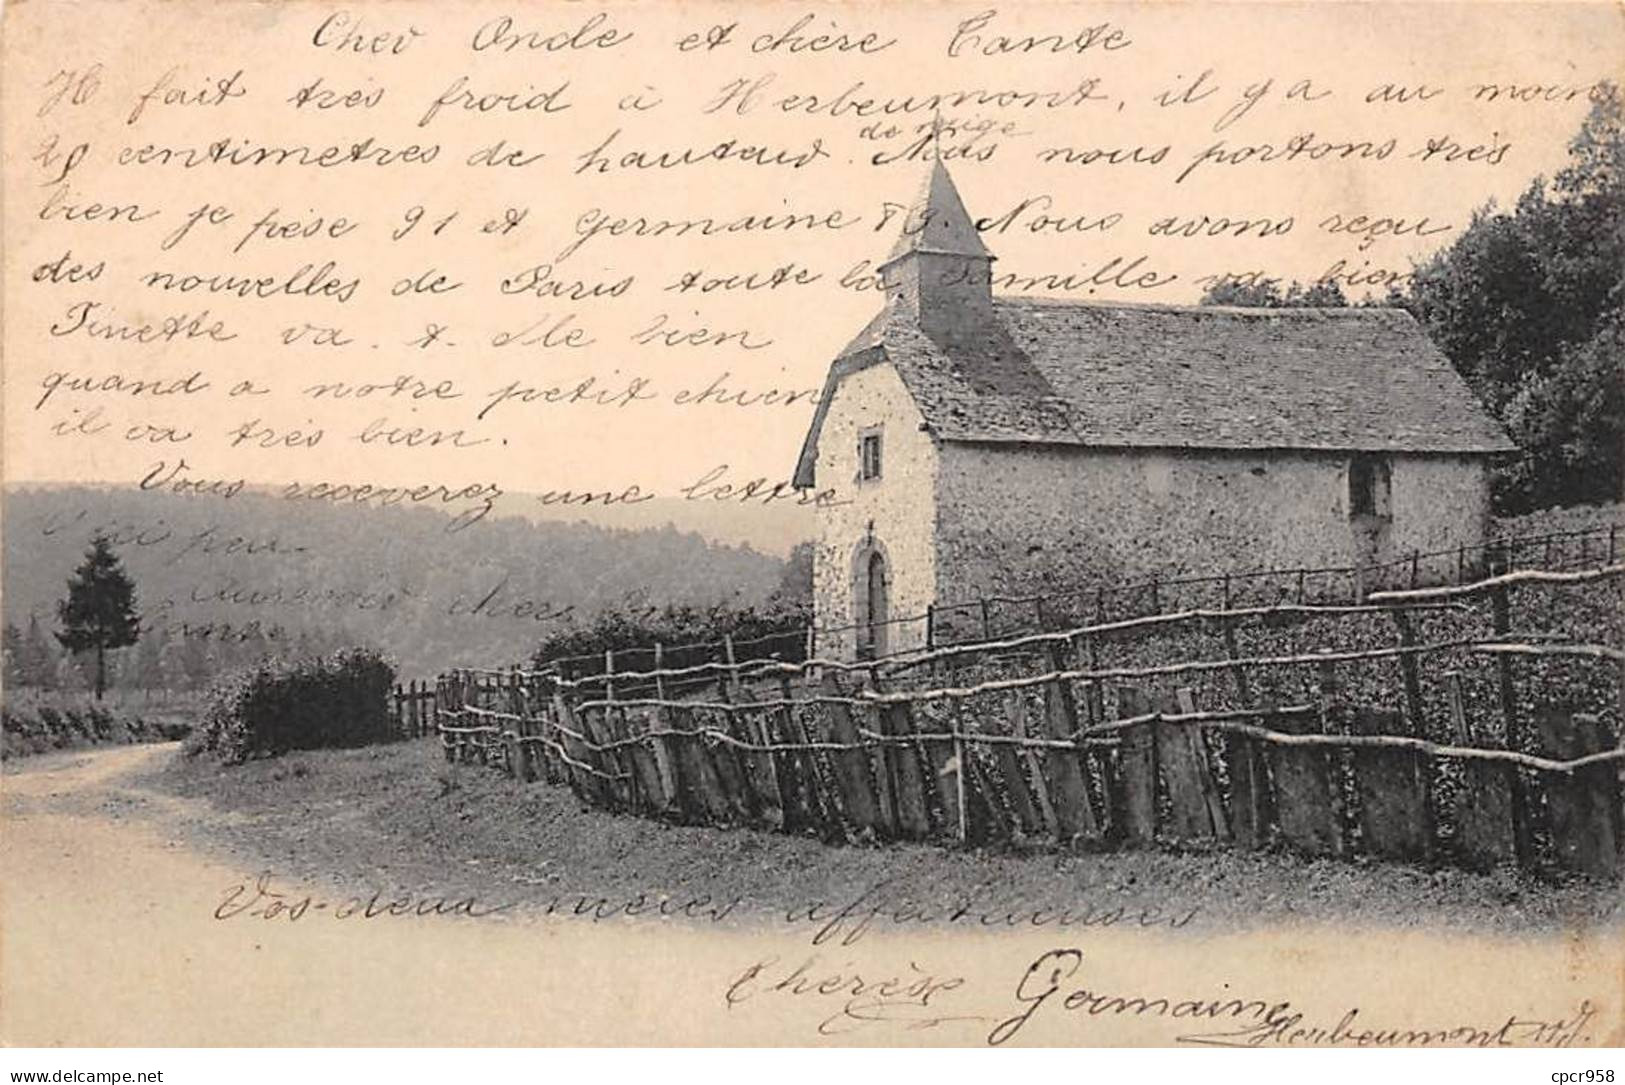 Cher Oncle et chère Tante
Il fait très froid à Herbeumont, il y a au moins
de neige
centimètres de hauteur. Nous nous portons très
bien je pèse 91 et Germaine 89. Nous avons reçu
des nouvelles de Paris toute la famille va bien
Finette va bien
quand a notre petit chien
il va très bien.
Vous receverez une lettre
peu
chers
Tante
Vos deux nièces affectueuses
Thérèse Germaine
Herbeumont
delcampe.net
cpcr958